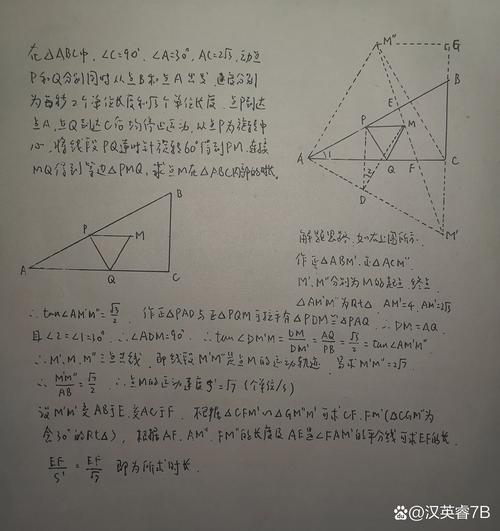 在△ABC中,∠C=90°,∠A=30°,AC=2√3,动点
P和Q分别同时从点B和点A出发,速度分别
为每秒2个单位长度和√3个单位长度.点P到达
点A,点Q到达C后均停止运动,以点P为旋转中
心,将线段PQ逆时针旋转60°得到PM,连接
MQ得到等边△PMQ,求点M在△ABC内部的时长.
M" G B E P M A 1 Q F C 2 D M'
B P M A Q C
解题思路,如右上图所示.
作正△ABM',正△ACM".
M',M"分别为M的起点、终点
△AM'M"为Rt△ AM'=4,AM"=2√3
∴tan∠AM'M"=√3/2 作正△PAD与正△PQM可推导有△PDM≌△PAQ ∴DM=AQ
且∠2=∠1=30° ∴∠ADM=90° ∴tan∠DM'M=DM/DM'=AQ/PB=√3/2=tan∠AM'M"
∴M',M,M"三点共线 即线段M'M"是点M的运动轨迹 易求M'M"=2√7
∴M'M"/AB=√7/2 ∴点M的运动速度S'=√7(个单位/s)
设M'M"交AB于E,交AC于F 根据△CFM'∽△GM"M'可求CF,FM'(△CGM"为
含30°的Rt△),根据AF,AM",FM"的长度及AE是∠FAM"的平分线可求EF的长.
EF/S'=EF/√7 即为所求时长.
汉英睿7B